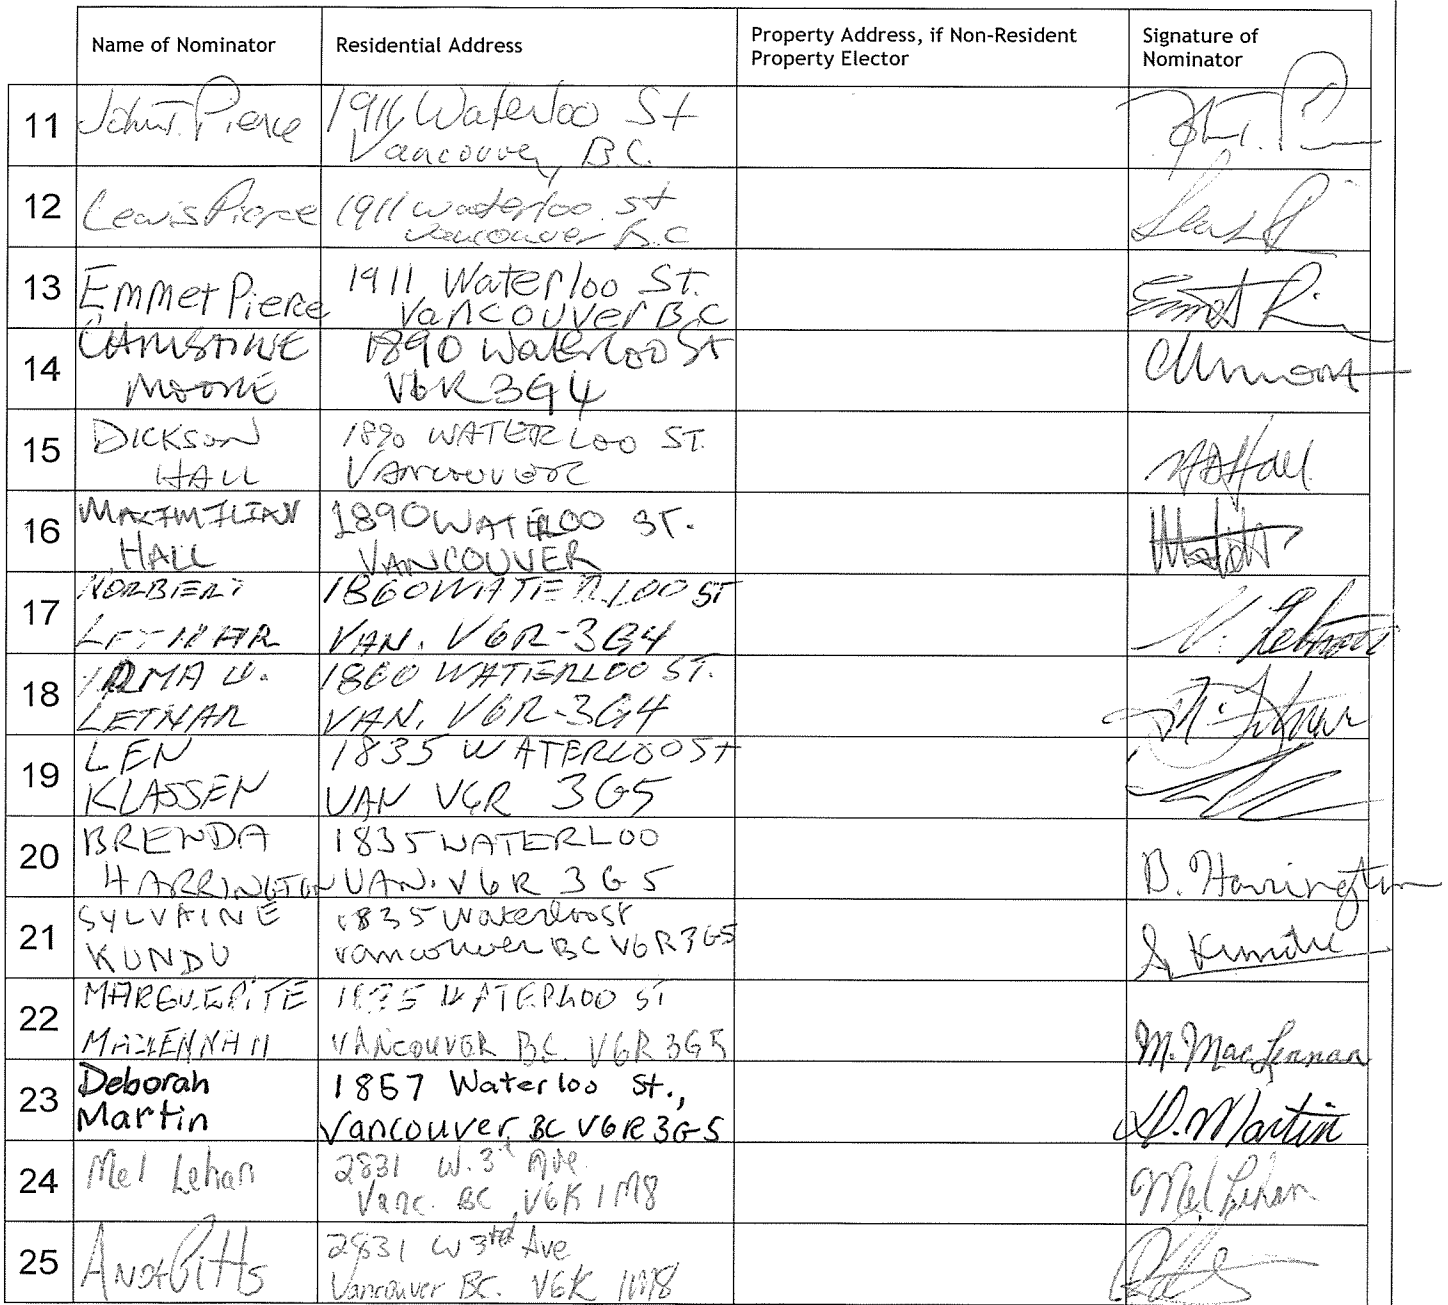 Name of Nominator
Residential Address
Property Address, if Non-Resident
Property Elector
Signature of
Nominator
11
John T. Pierce
1911 Waterloo St
Vancouver, B.C.
12
Lewis Pierce
1911 waterloo st
Vancouver B.C
13
Emmet Pierce
1911 Waterloo St.
Vancouver B.C
14
CHRISTINE
MOORE
1890 Waterloo St
V6R 3G4
15
DICKSON
HALL
1890 WATERLOO ST.
VANCOUVER
16
MAXIMILIAN
HALL
1890 WATERLOO ST.
VANCOUVER
17
NORBERT
LETNAR
1860 WATERLOO ST
VAN. V6R-3G4
N. Letnar
18
IRMA U.
LETNAR
1860 WATERLOO ST.
VAN. V6R-3G4
19
LEN
KLASSEN
1835 WATERLOO St
VAN V6R 3G5
20
BRENDA
HARRINGTON
1835 WATERLOO
VAN. V6R 3G5
B. Harrington
21
SYLVAINE
KUNDU
1835 Waterloo St
Vancouver BC V6R 3G5
S Kundu
22
MARGUERITE
MACLENNAN
1835 WATERLOO ST
VANCOUVER BC. V6R 3G5
M. MacLennan
23
Deborah
Martin
1857 Waterloo St.,
Vancouver BC V6R 3G5
D. Martin
24
Mel Lehan
2831 W. 3rd Ave.
Vanc. BC, V6K 1M8
Mel Lehan
25
2831 W 3rd Ave
Vancouver BC. V6K 1M8